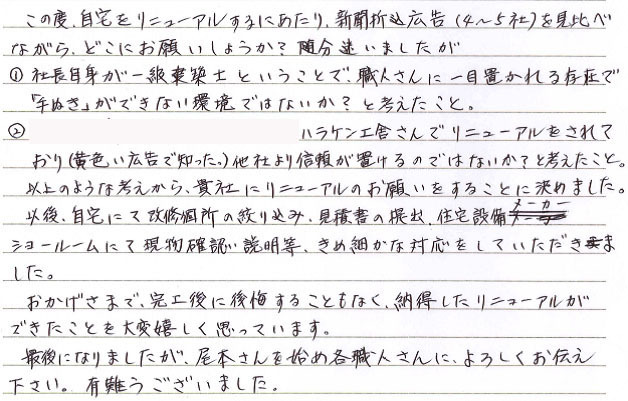 この度、自宅をリニューアルするにあたり、新聞折込広告(4〜5社)を見比べ
ながら、どこにお願いしようか?随分迷いましたが
① 社長自身が一級建築士ということで、職人さんに一目置かれる存在で
「手ぬき」ができない環境ではないか?と考えたこと。
② ハラケン工舎さんでリニューアルをされて
おり(黄色い広告で知った。)他社より信頼が置けるのではないか?と考えたこと。
以上のような考えから、貴社にリニューアルのお願いをすることに決めました。
以後、自宅にて改修個所の絞り込み、見積書の提出、住宅設備メーカー
ショールームにて現物確認・説明等、きめ細かな対応をしていただきま
した。
おかげさまで、完工後に後悔することもなく、納得したリニューアルが
できたことを大変嬉しく思っています。
最後になりましたが、尾本さんを始め各職人さんに、よろしくお伝え
下さい。有難うございました。